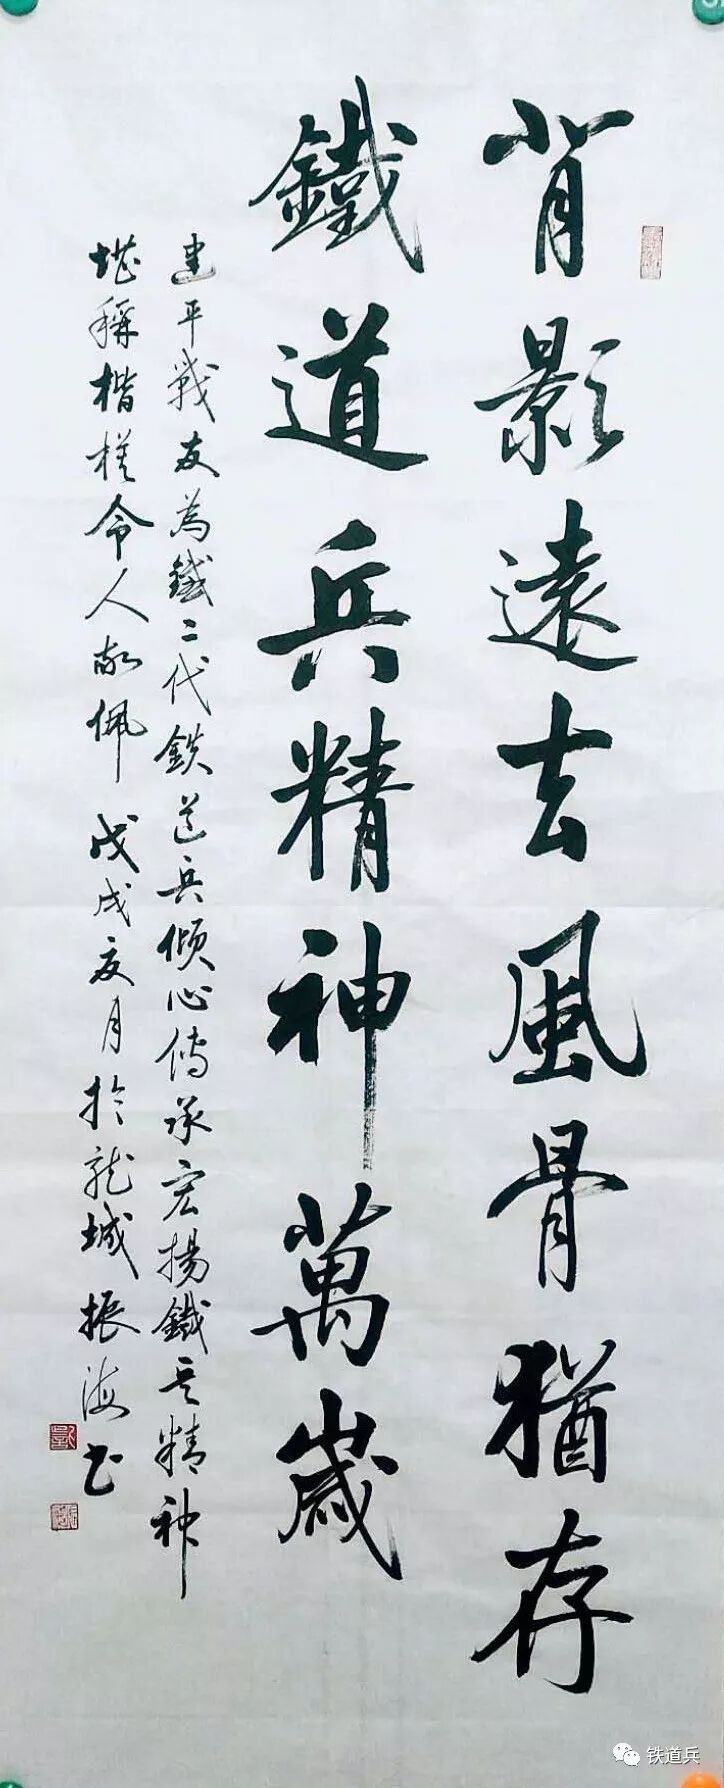 背影遠去風骨猶存
鐵道兵精神萬歲
建平戰友為鐵二代鉄道兵傾心傳承宏揚鐵兵精神
堪稱楷模令人敬佩 戊戌夏月於龍城振海书
铁道兵